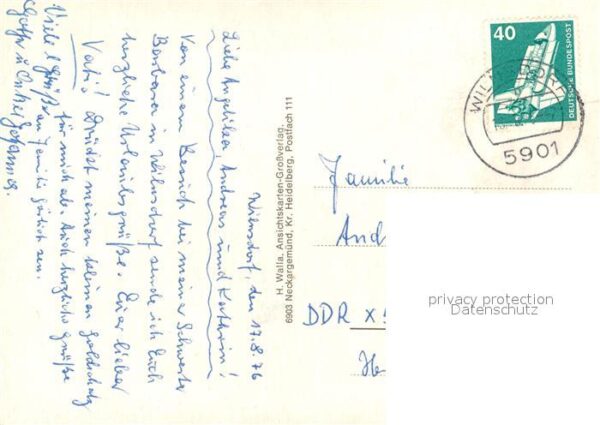 Wilnsdorf, den 17.8.76
Liebe Angelika, Andreas und Kathrin!
Von einem Besuch bei meiner Schwester
Barbara in Wilnsdorf sende ich Euch
herzliche Urlaubsgrüße. Euer lieber
Vati! Drückt meinen kleinen Goldschatz
für mich ab. Auch herzliche Grüße
an Familie
Viele Grüße
u. Onkel Johannes.
H. Walla, Ansichtskarten-Großverlag,
6903 Neckargemünd, Kr. Heidelberg, Postfach 111
40
DEUTSCHE BUNDESPOST
5901
Familie
And
DDR X
privacy protection
Datenschutz